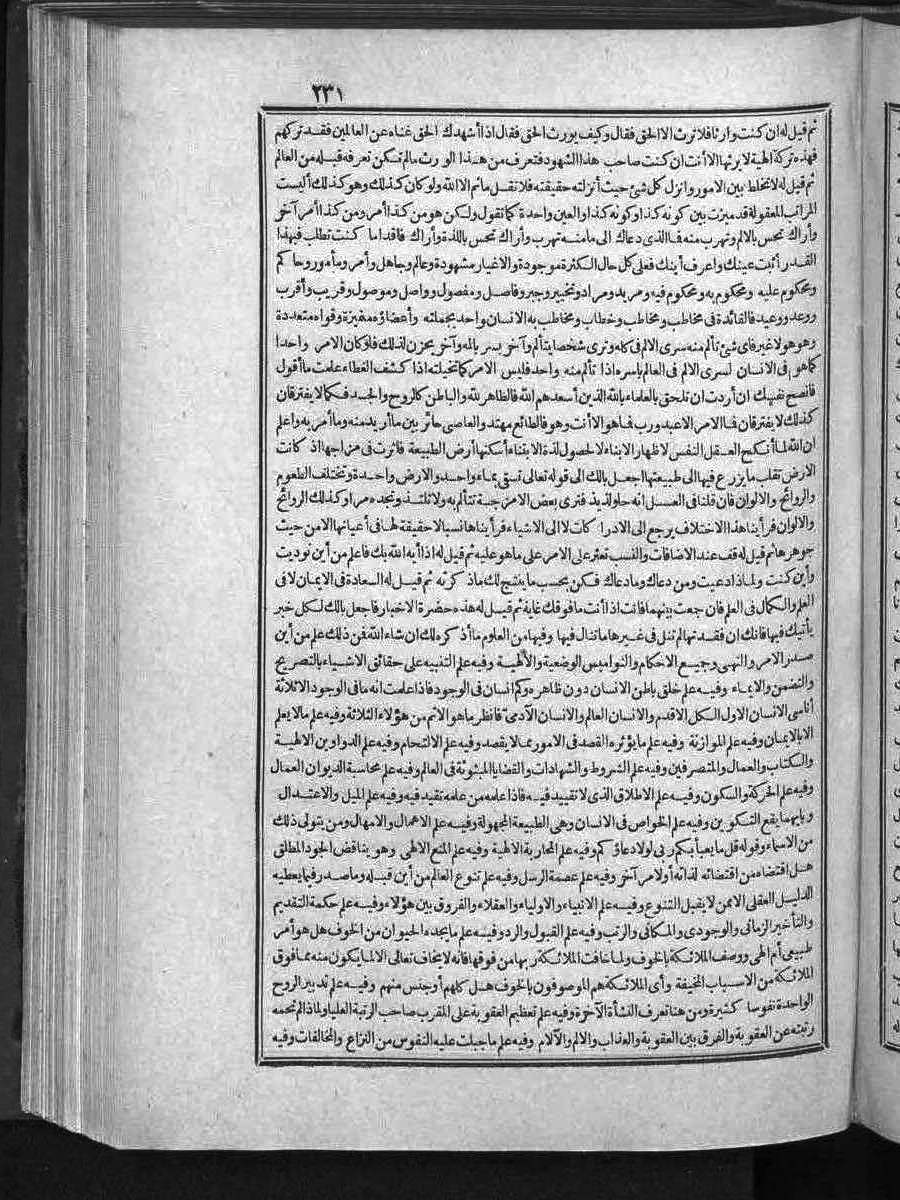 ٢٣١
ثم قيل له ان كنت وارثا فلا ترث الا الحق فقال وكيف يورث الحق فقال اذا أشهدك الحق غناه عن العالمين فقد تركهم
فهذه تركة الهية لا يرثها الا أنت ان كنت صاحب هذا الشهود فتعرف من هذا الورث مالم تكن تعرفه قبله من العالم
ثم قيل له لا تخلط بين الامور وانزل كل شئ حيث أنزلته حقيقته فلا تقل ما ثم الا الله ولو كان كذلك وهو كذلك أليست
المراتب المعقولة قد ميزت بين كونه كذا وكونه كذا والعين واحدة كما تقول ولكن هو من كذا أمر ومن كذا أمر آخر
وأراك تحس بالالم وتهرب منه فما الذى دعاك الى ما منه تهرب وأراك تحس باللذة وأراك فاقدا ما كنت تطلب فبهذا
القدر أثبت عينك واعرف أينك فعلى كل حال الكثرة موجودة والاغيار مشهودة وعالم وجاهل وأمر ومأمور وحاكم
ومحكوم عليه ومحكوم به ومحكوم فيه ومريد ومراد وتخيير وجبر وفاصل ومفصول وواصل وموصول وقريب وأقرب
ووعد ووعيد فالفائدة فى مخاطب ومخاطب وخطاب ومخاطب به الانسان واحد بجملته وأعضاؤه متميزة وقواه متعددة
وهو هو لا غير فاى شئ تألم منه سرى الالم فى كله وترى شخصا يتألم وآخر يسر بالمه وآخر يحزن لذلك فلو كان الامر واحدا
كما هو فى الانسان لسرى الالم فى العالم باسره اذا تألم منه واحد فليس الامر كما تخيلته اذا كشف الغطاء علمت ما أقول
فانصح نفسك ان أردت ان تلحق بالعلماء بالله الذين أسعدهم الله فالظاهر لله والباطن كالروح والجسد فكما لا يفترقان
كذلك لا يفترقان فما الامر الا عبد ورب فما هو الا أنت وهو فالطائع مهتد والعاصى حائر بين ما أريد منه وما أمر به واعلم
ان الله لما أنكح العقل النفس لاظهار الابناء لا لحصول لذة الابتناء أسكنها أرض الطبيعة فاثرت فى مزاجها اذ كانت
الارض تقلب ما يزرع فيها الى طبيعتها اجعل بالك الى قوله تعالى تسقى بماء واحد والارض واحدة وتختلف الطعوم
والروائح والالوان فان قلنا فى العسل انه حلو لذيذ فترى بعض الامزجة تتألم به ولا تلتذ وتجده مرا وكذلك الروائح
والالوان فرأينا هذا الاختلاف يرجع الى الادراكات لا الى الاشياء فرأيناها نسبا لا حقيقة لها فى أعيانها الا من حيث
جوهرها ثم قيل له قف عند الاضافات والنسب تعثر على الامر على ما هو عليه ثم قيل له اذا أيه الله بك فاعلم من أين نوديت
وأين كنت ولماذا دعيت ومن دعاك وما دعاك فكن بحسب ما ينتج لك ماذكرته ثم قيل له السعادة فى الايمان لا فى
العلم والكمال فى العلم فان جمعت بينهما فانت اذا أنت ما فوقك غاية ثم قيل له هذه حضرة الاخبار فاجعل بالك لكل خبر
يأتيك فيها فانك ان فقدتها لم تنل فى غيرها ما تنال فيها وفيها من العلوم ما أذكره لك ان شاء الله فمن ذلك علم من أين
صدر الامر والنهى وجميع الاحكام والنواميس الوضعية والالهية وفيه علم التنبيه على حقائق الاشياء بالتصريح
والتضمن والايماء وفيه علم خلق باطن الانسان دون ظاهره وكم انسان فى الوجود فاذا علمت انه ما فى الوجود الا ثلاثة
أناسى الانسان الاول الكل الاقدم والانسان العالم والانسان الآدمى فانظر ما هو الاتم من هؤلاء الثلاثة وفيه علم ما لا يعلم
الا بالايمان وفيه علم الموازنة وفيه علم ما يؤثره القصد فى الامور مما لا يقصد وفيه علم الالتحام وفيه علم الدواوين الالهية
والكتاب والعمال والمتصرفين وفيه علم الشروط والشهادات والقضايا المبثوثة فى العالم وفيه علم محاسبة الديوان العمال
وفيه علم الحركة والسكون وفيه علم الاطلاق الذى لا تقييد فيه فاذا علمه من علمه تقيد فيه وفيه علم الميل والاعتدال
وبايهما يقع التكوين وفيه علم الخواص فى الانسان وهى الطبيعة المجهولة وفيه علم الاهمال والامهال ومن يتولى ذلك
من الاسماء وقوله قل ما يعبأ بكم ربى لولا دعاؤكم وفيه علم المحاربة الالهية وفيه علم المنع الالهى وهو يناقض الجود المطلق
هل اقتضاه من اقتضائه لذاته أو لامر آخر وفيه علم عصمة الرسل وفيه علم تنوع العالم من أين قبله وما صدر فيما يعطيه
الدليل العقلى الا ممن لا يقبل التنوع وفيه علم الانبياء والاولياء والعقلاء والفروق بين هؤلاء وفيه علم حكمة التقديم
والتأخير الزمانى والوجودى والمكانى والرتب وفيه علم القبول والرد وفيه علم ما يجده الحيوان من الخوف هل هو أمر
طبيعى أم الهى ووصف الملائكة بالخوف ولما خافت الملائكة ربها من فوقها فانه لا يخاف تعالى الا لما يكون منه مما فوق
الملائكة من الاسباب المخيفة وأى الملائكة هم الموصوفون بالخوف هل كلهم أو جنس منهم وفيه علم تدبير الروح
الواحدة نفوسا كثيرة ومن هنا تعرف النشأة الآخرة وفيه علم تعظيم العقوبة على المقرب صاحب الرتبة العليا ولماذا لم تحمه
رتبته عن العقوبة والفرق بين العقوبة والعذاب والالم والآلام وفيه علم ما جبلت عليه النفوس من النزاع والمخالفات وفيه